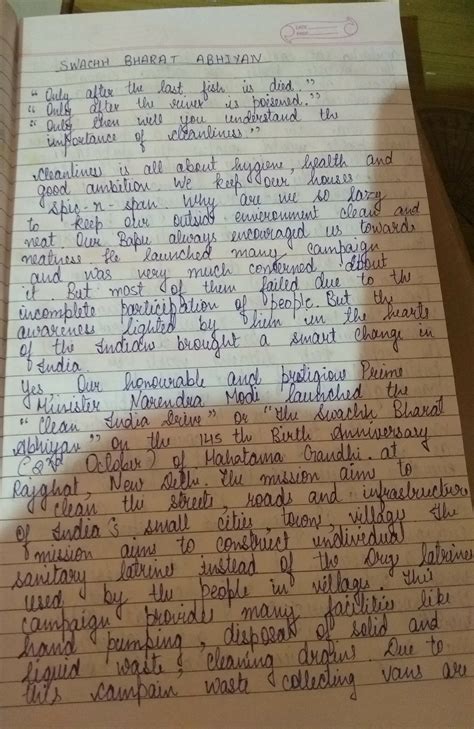 SWACHH BHARAT ABHIYAN
"Only after the last fish is died."
"Only after the river is poisened."
"Only then will you understand the
importance of cleanliness."
Cleanliness is all about hygiene, health and
good ambition. We keep our houses
spic-n-span why are we so lazy
to keep our outside environment clean and
neat. Our Bapu always encouraged us towards
neatness. He launched many campaign
and was very much concerned about
it. But most of them failed due to the
incomplete participation of people. But the
awareness lighted by him in the hearts
of the Indians brought a smart change in
India.
Yes, Our honourable and pretigious Prime
Minister Narendra Modi launched the
"Clean India Drive" or "The Swachh Bharat
Abhiyan" on the 145 th Birth Anniversary
October) of Mahatama Gandhi. at
Rajghat, New Delhi. The mission aims to
clean the streets, roads and infrastructure
of India's small cities, towns, village. The
mission aims to construct individual
sanitary latrines instead of the Dry latrines
used by the people in village. This
campaign provides many facilities like
hand pumping, disposal of solid and
liquid waste, cleaning drains. Due to
this campain, waste collecting vans are